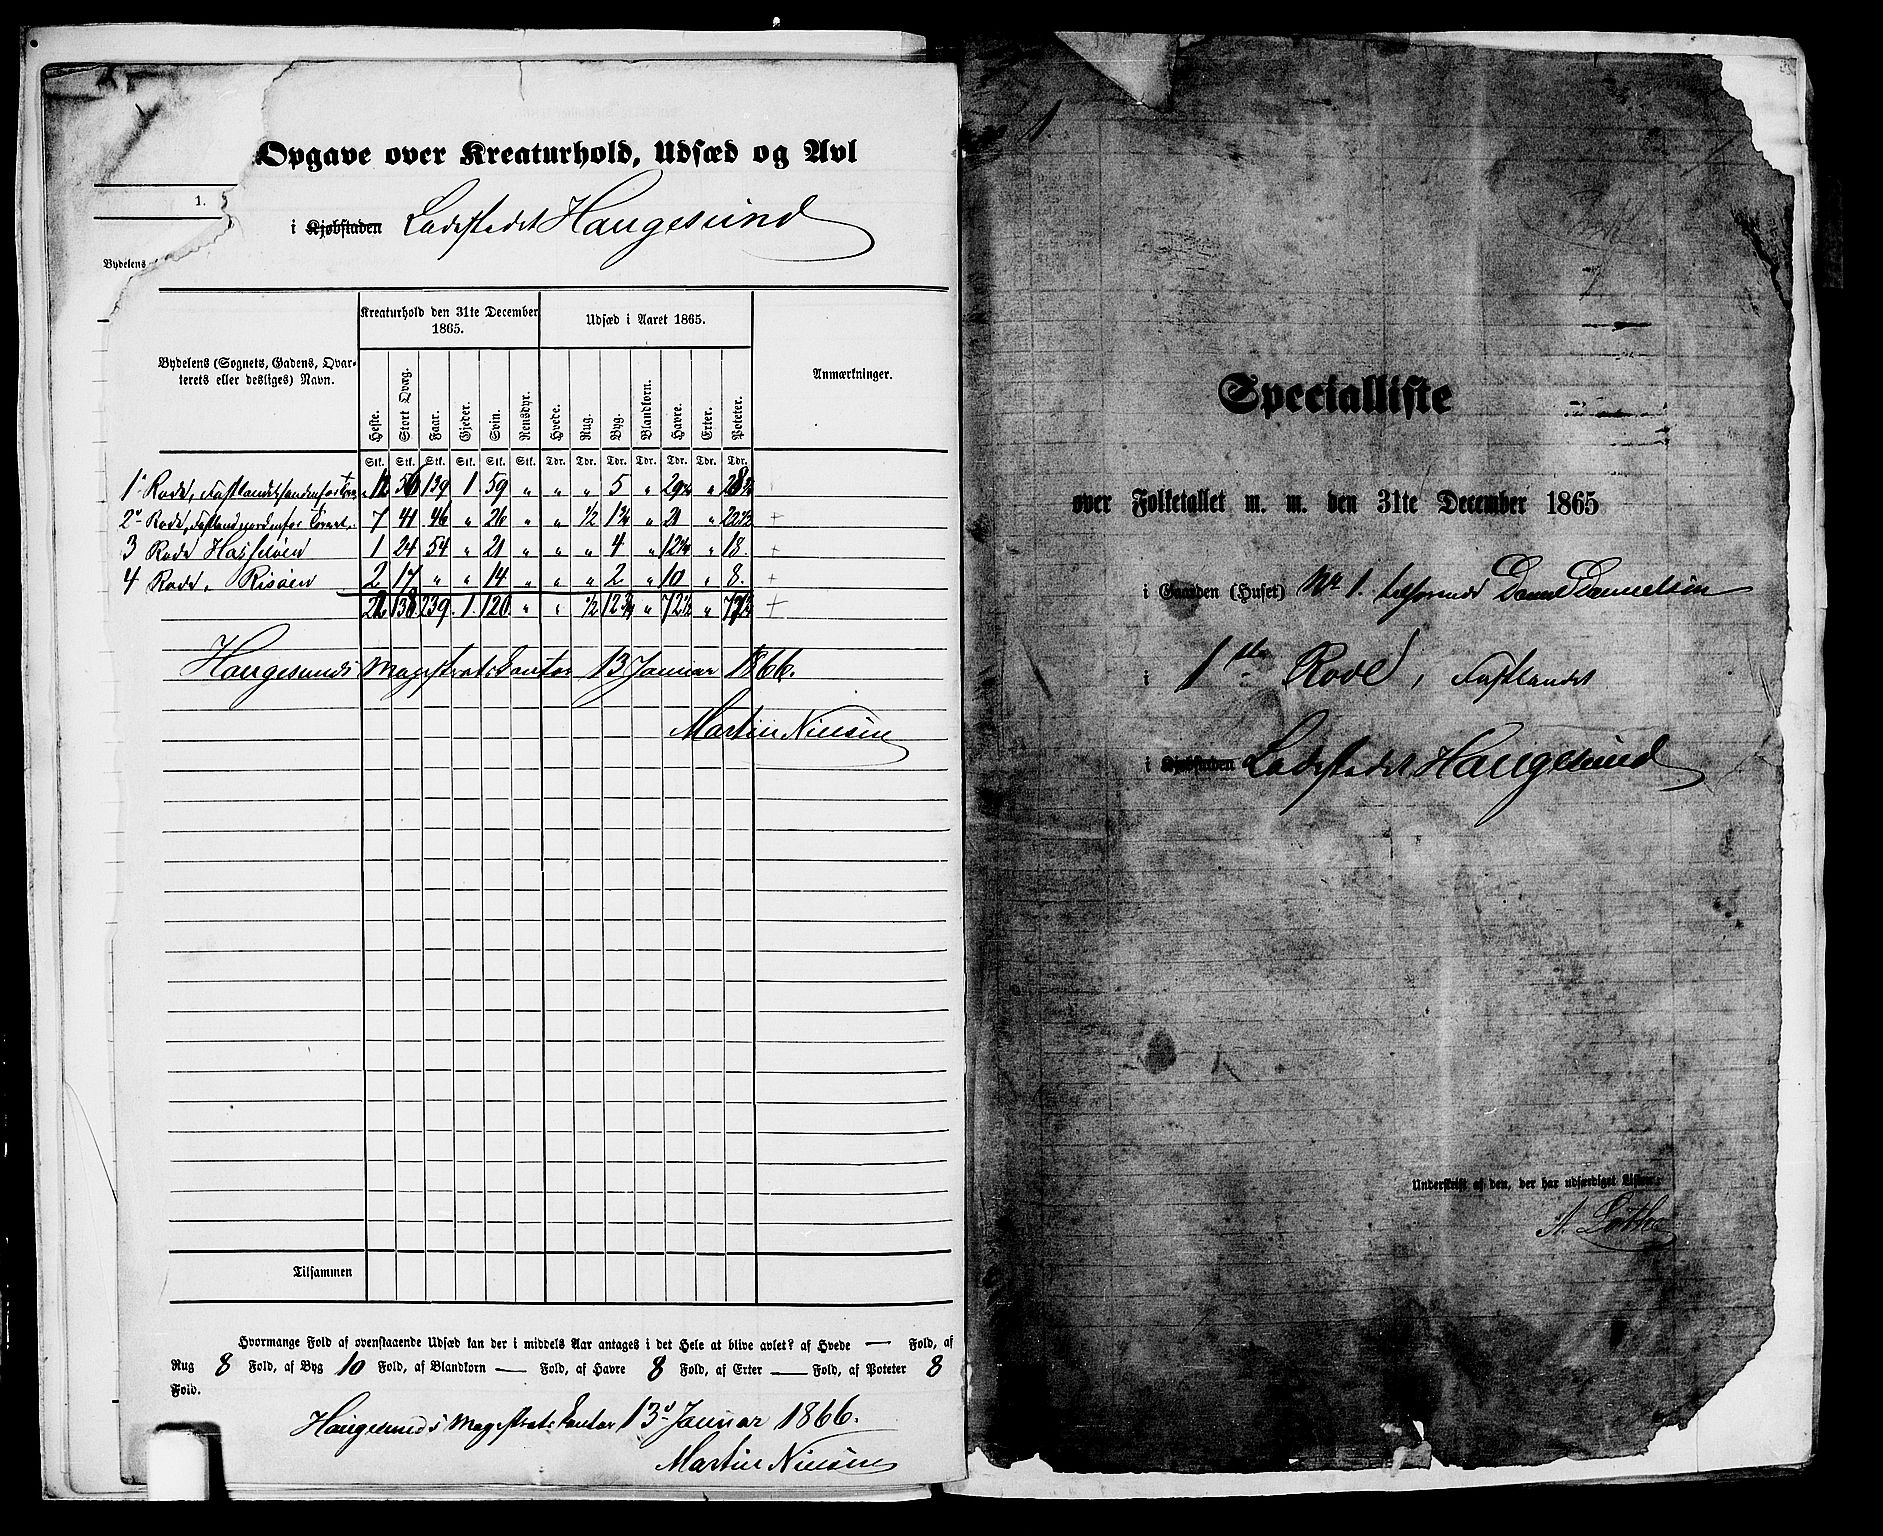 Opgave over Kreaturhold, Udsæd og Avl
1.
i Kjøbstaden Ladestedet Haugesund
Bydelens
Bydelens (Sognets, Gadens, Qvarterets eller desliges) Navn.
Kreaturhold den 31te December 1865.
Udsæd i Aaret 1865.
Anmærkninger.
Heste. Stort Qvæg. Faar. Gjeder. Svin. Rensdyr. Hvede. Rug. Byg. Blandkorn. Havre. Erter. Poteter.
Stk. Stk. Stk. Stk. Stk. Stk. Tdr. Tdr. Tdr. Tdr. Tdr. Tdr. Tdr.
1ª Rode, Fastlandet søndenfor Torvet 12 56 139 1 59 " " " 5 " "
2ª Rode, Fastland nordenfor Torvet 7 41 46 " 26 " " 1/2 " 21 " 22 1/2
3 Rode Hasseløen 1 24 54 " 21 " " " 4 " " 18.
4 Rode, Risøen 2 17 " " 14 " " " 2 " 10 " 8.
22 138 239. 1. 120. " " 1/2 12 3/4 " 72 1/2 "
Haugesunds Magistratskontor 13 Januar 1866.
Martin Nielsen
Tilsammen
Hvormange Fold af ovenstaaende Udsæd kan der i middels Aar antages i det Hele at blive avlet? af Hvede — Fold, af
Rug 8 Fold, af Byg 10 Fold, af Blandkorn — Fold, af Havre 8 Fold, af Erter — Fold, af Poteter 8
Fold.
Haugesunds Magistratskontor 13 Januar 1866.
Martin Nielsen
1.
Specialliste
over Folketallet m. m. den 31te December 1865
i Gaarden (Huset) No 1. tilhørende Daniel Danielsen
i 1ste Rode, Fastlandet
i Kjøbstaden Ladestedet Haugesund
Underskrift af den, der har udfærdiget Listen:
A. Løthe